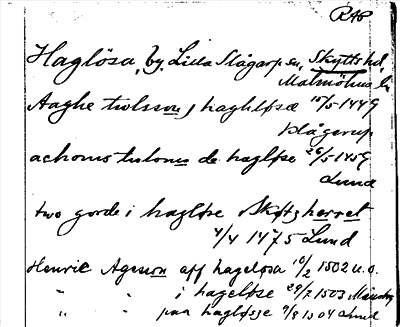 RAP
Haglösa, by, Lilla Slågarp sn, Skytts hd,
Malmöhus l.
Aaghe twlsson j haghløsæ 10/5 1449
Slågerup
achonis tulonis de hagløse 26/5 1459
Lund
two gorde i hagløse Skøtz herret
4/4 1475 Lund
Henric Ageson aff hageløsa 10/2 1502 u.o.
" " i hageløse 29/7 1503
" " paa hagløsse 9/8 1504 Lund